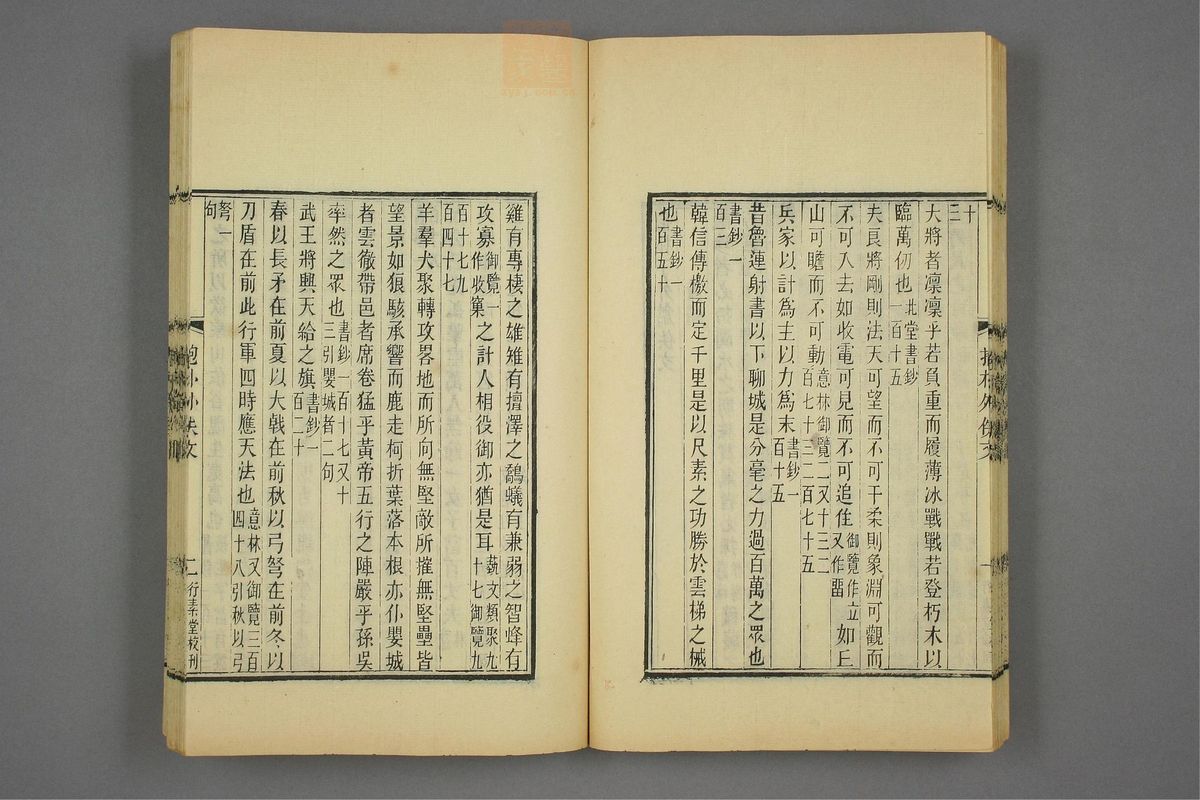 十三
大將者凜凜乎若負重而履薄冰戰戰若登朽木以
臨萬仞也北堂書鈔一百十五
夫良將剛則法天可望而不可干柔則象淵可觀而
不可入去如收電可見而不可追住御覽作立又作畱如丘
山可瞻而不可動意林御覽二又十三二百七十三二百七十五
兵家以計爲主以力爲末書鈔一百十五
昔魯連射書以下聊城是分毫之力過百萬之眾也
書鈔一百三
韓信傳檄而定千里是以尺素之功勝於雲梯之械
也書鈔一百五十
抱朴外佚文
一
雞有專棲之雄雉有擅澤之鷸蟻有兼弱之智蜂有
攻寡御覽一作收窠之計人相役御亦猶是耳藝文類聚九十七御覽九
百十七九百四十七
羊羣犬聚轉攻畧地而所向無堅敵所摧無堅壘皆
望景如狼駭承響而鹿走柯折葉落本根亦仆嬰城
者雲徹帶邑者席卷猛乎黃帝五行之陣嚴乎孫吳
率然之眾也書鈔一百十七又十三引嬰城者二句
武王將興天給之旗書鈔一百二十
春以長矛在前夏以大戟在前秋以弓弩在前冬以
刀盾在前此行軍四時應天法也意林又御覽三百四十八引秋以弓
弩一句
抱朴外佚文
二
行素堂校刊